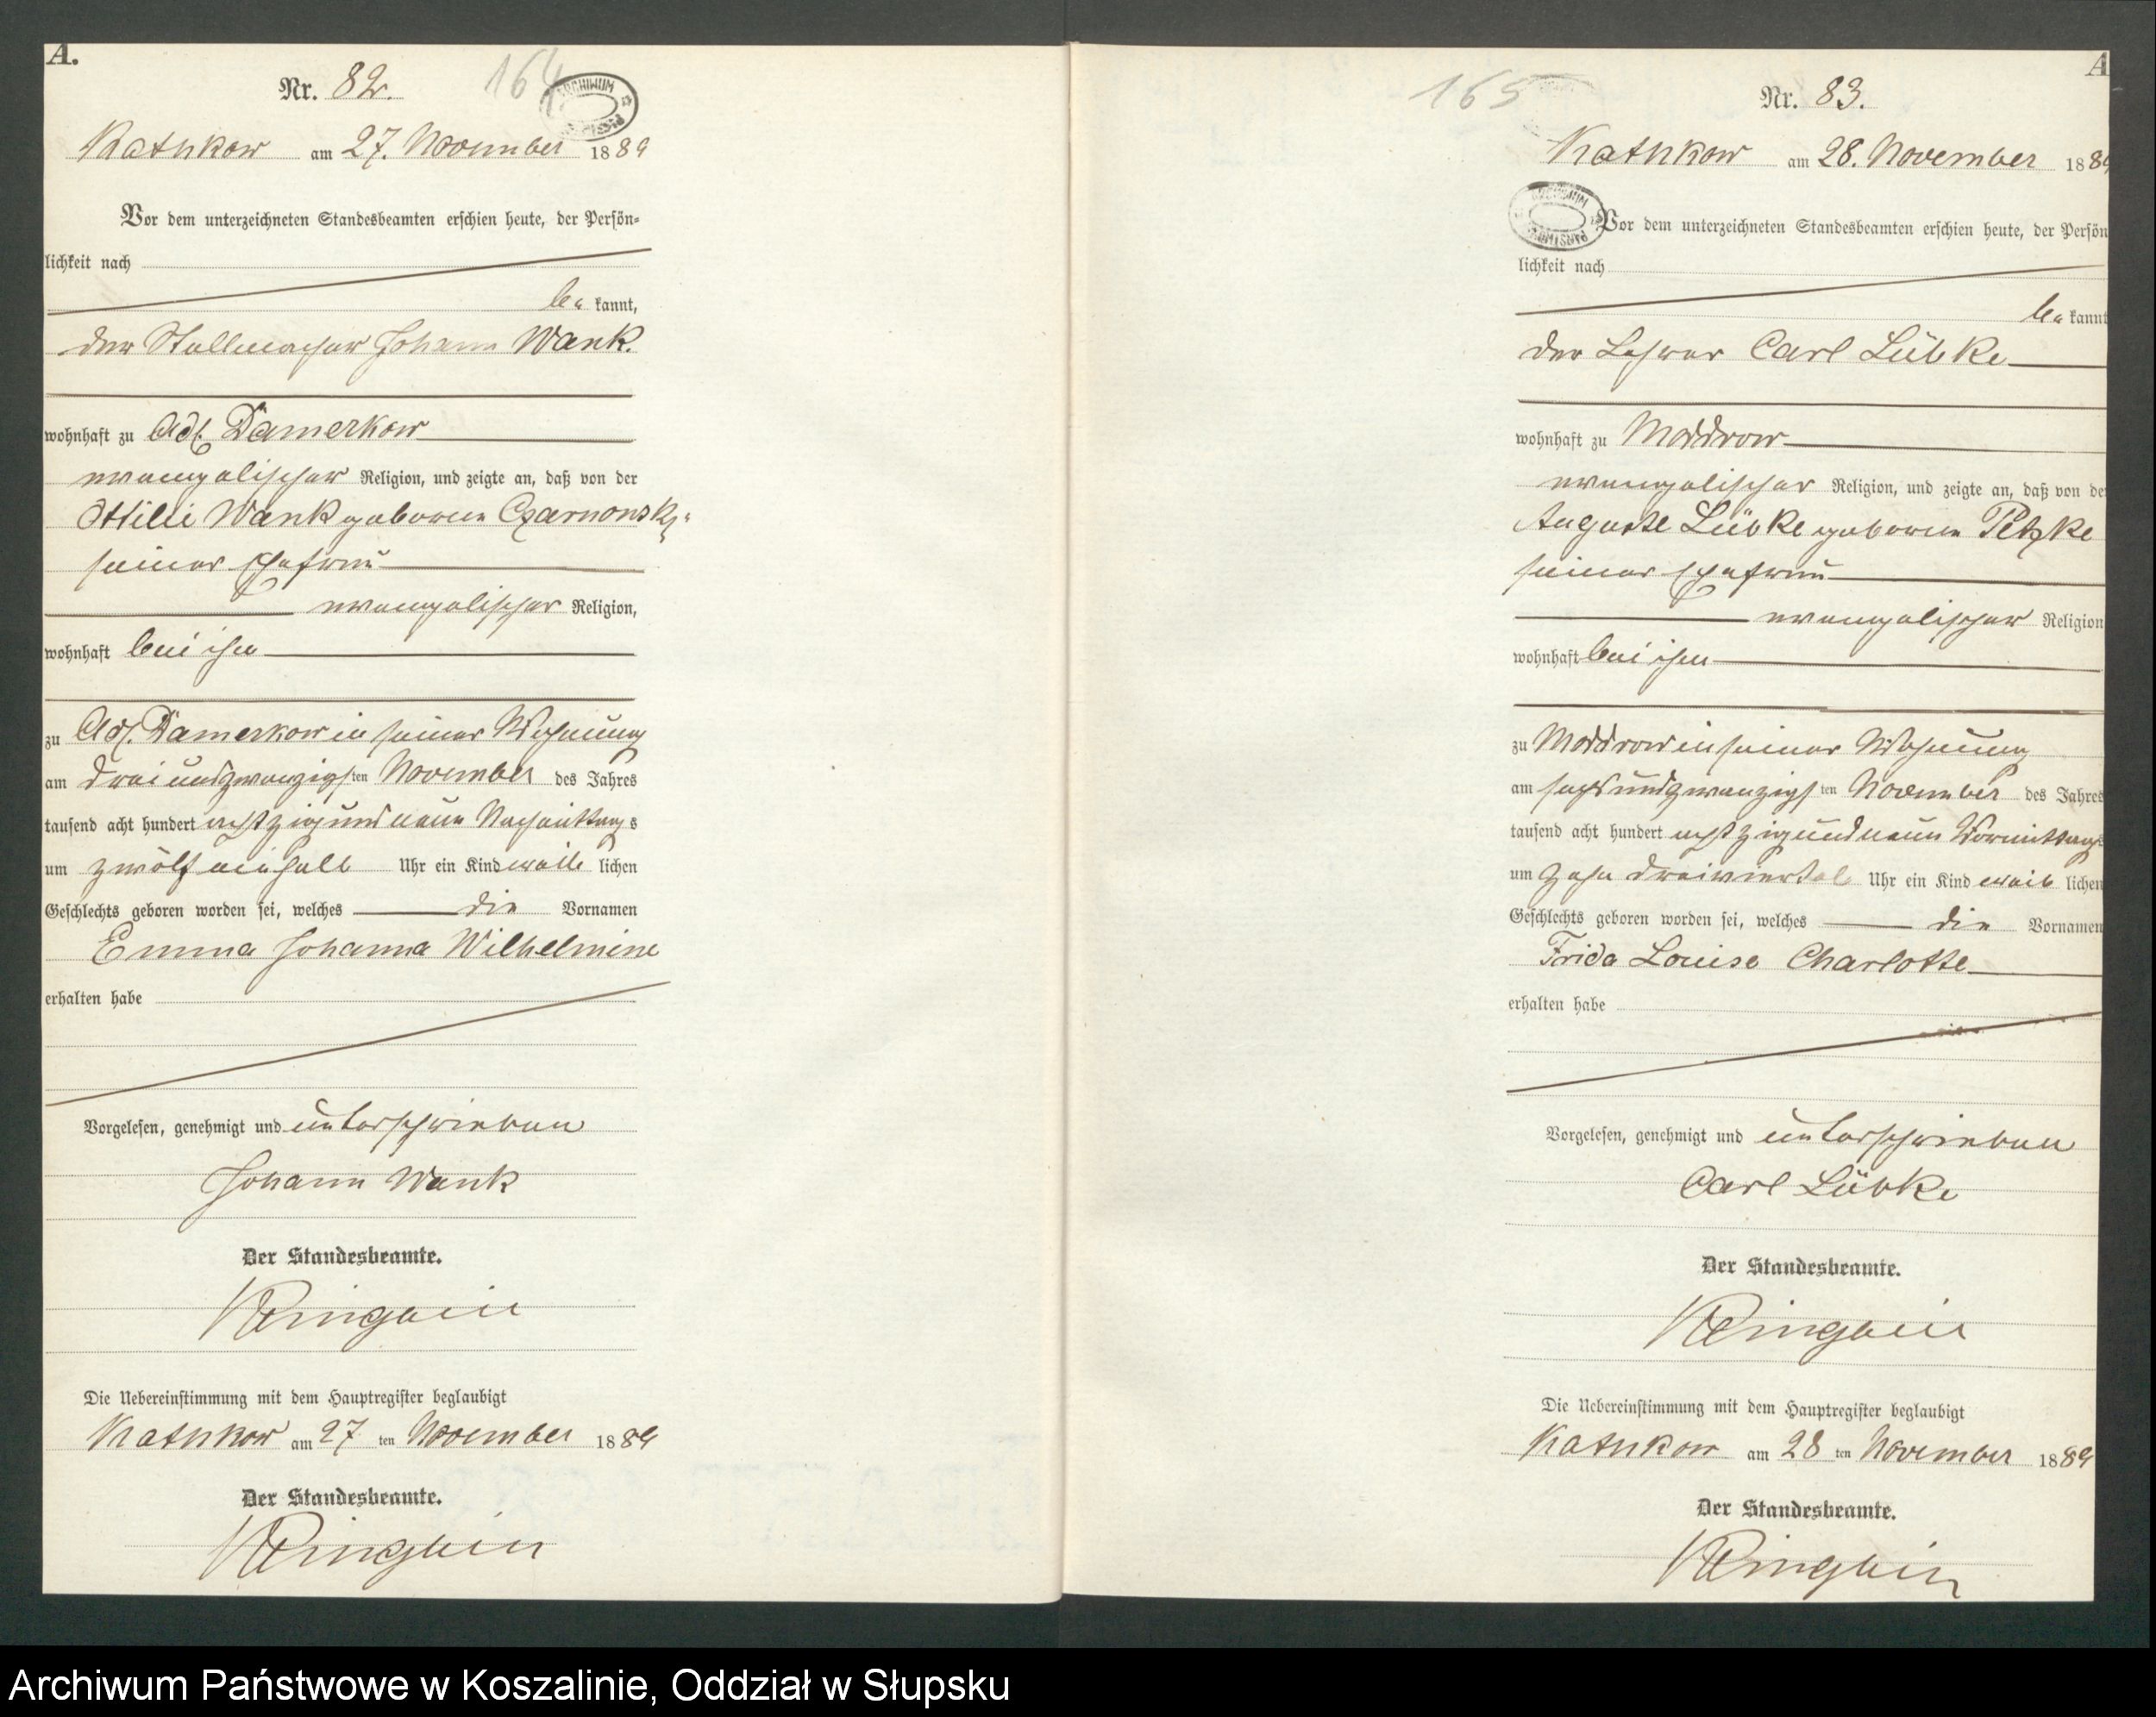 A.
Nr. 82.
164
ARCHIWUM
Kathkow am 27. November 1889
Vor dem unterzeichneten Standesbeamten erschien heute, der Persön-
lichkeit nach
be kannt,
der Stellmacher Johann Wank.
wohnhaft zu Adl. Damerkow
evangelischer Religion, und zeigte an, daß von der
Ottilie Wank geborene Czarnowsky
seiner Ehefrau
evangelischer Religion,
wohnhaft bei ihm
zu Adl. Damerkow in seiner Wohnung
am drei und zwanzigsten November des Jahres
tausend acht hundert achtzig und neun Nachmittags
um zwölf einhalb Uhr ein Kind weib lichen
Geschlechts geboren worden sei, welches die Vornamen
Emma Johanna Wilhelmine
erhalten habe
Vorgelesen, genehmigt und unterschrieben
Johann Wank
Der Standesbeamte.
Die Uebereinstimmung mit dem Hauptregister beglaubigt
Kathkow am 27 ten November 1889
Der Standesbeamte.
A
165
Nr. 83.
Kathkow am 28. November 188
Vor dem unterzeichneten Standesbeamten erschien heute, der Persön
lichkeit nach
be kannt
der Lehrer Carl Lübke
wohnhaft zu Moddrow
evangelischer Religion, und zeigte an, daß von de
Auguste Lübke geborene Petzke
seiner Ehefrau
evangelischer Religion
wohnhaft bei ihm
zu Moddrow in seiner Wohnung
am sechs und zwanzigsten November des Jahres
tausend acht hundert achtzig und neun Vormittags
um zehn dreiviertel Uhr ein Kind weib lichen
Geschlechts geboren worden sei, welches die Vornamen
Frida Louise Charlotte
erhalten habe
Vorgelesen, genehmigt und unterschrieben
Carl Lübke
Der Standesbeamte.
Die Uebereinstimmung mit dem Hauptregister beglaubigt
Kathkow am 28 ten November 1889
Der Standesbeamte.
Archiwum Państwowe w Koszalinie, Oddział w Słupsku